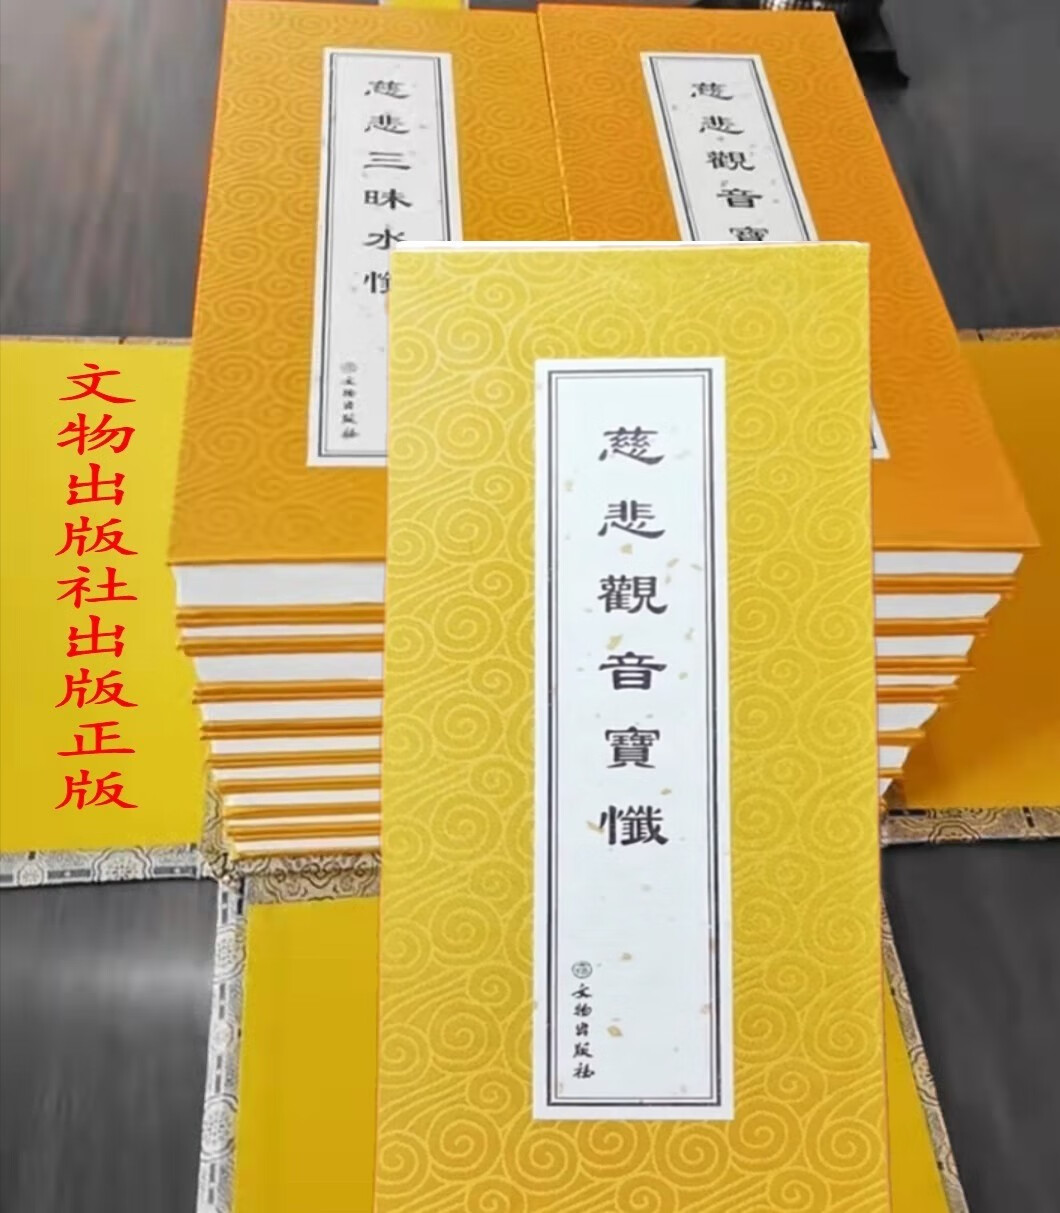 慈悲三昧水懺
文物出版社
慈悲觀音寶
慈悲觀音寶懺
文物出版社
文物出版社出版正版